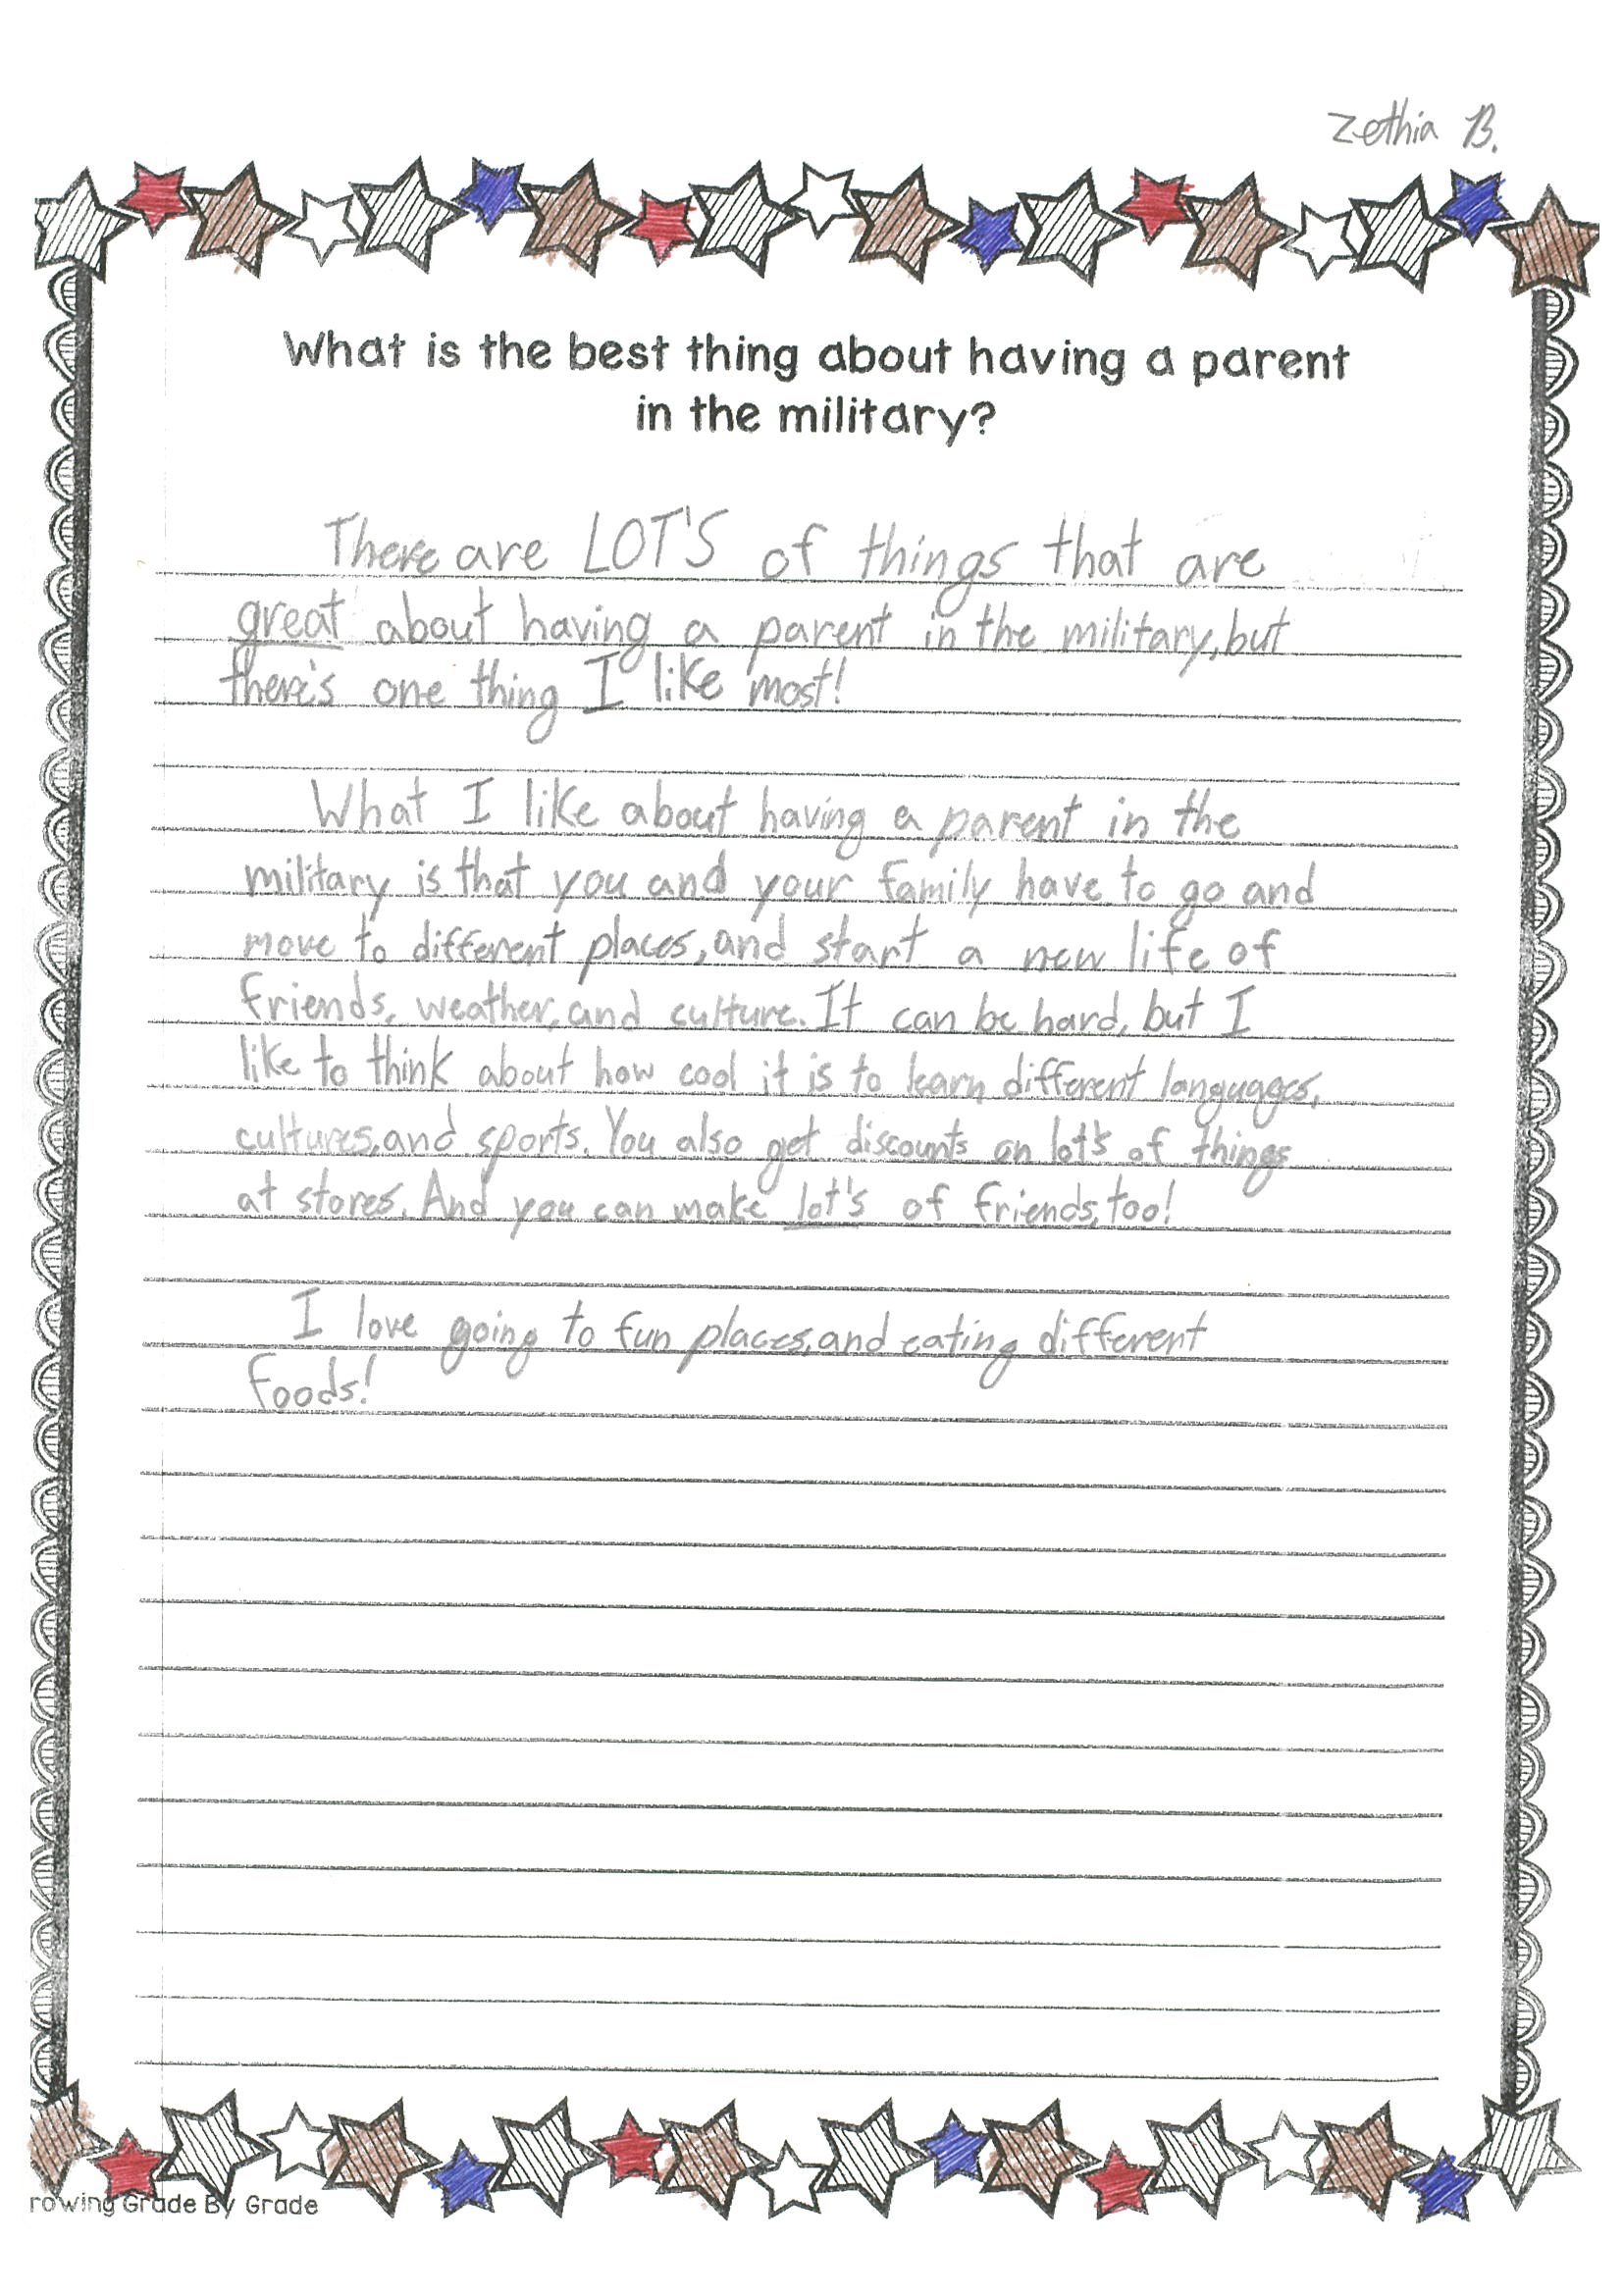 Zethia B.
What is the best thing about having a parent
in the military?
There are LOT'S of things that are
great about having a parent in the military, but
there's one thing I like most!
What I like about having a parent in the
military is that you and your family have to go and
move to different places, and start a new life of
friends, weather, and culture. It can be hard, but I
like to think about how cool it is to learn different languages,
cultures, and sports. You also get discounts on lot's of things
at stores. And you can make lot's of friends, too!
I love going to fun places, and eating different
foods!
rowing Grade By Grade